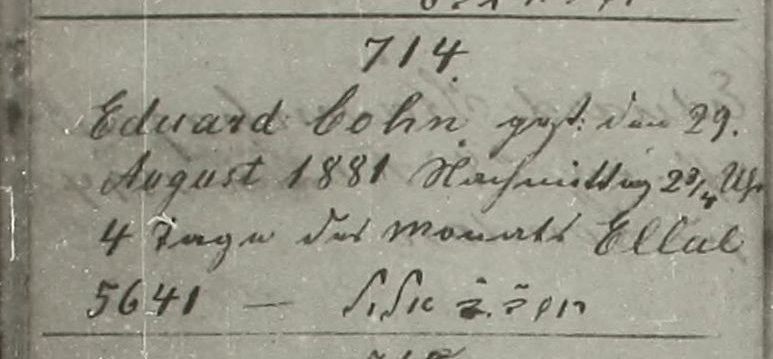 714.
Eduard Cohn gest: den 29.
August 1881 Nachmittag 2 3/4 Uhr
4 Tage des Monats Ellul
5641 — אלול